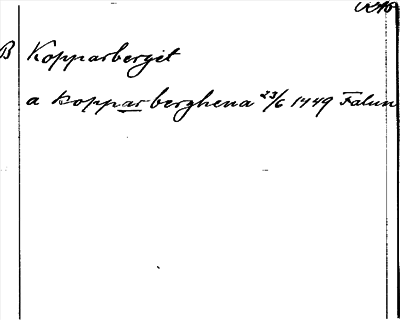 B Kopparberget
a kopparberghena 23/6 1449 Falun